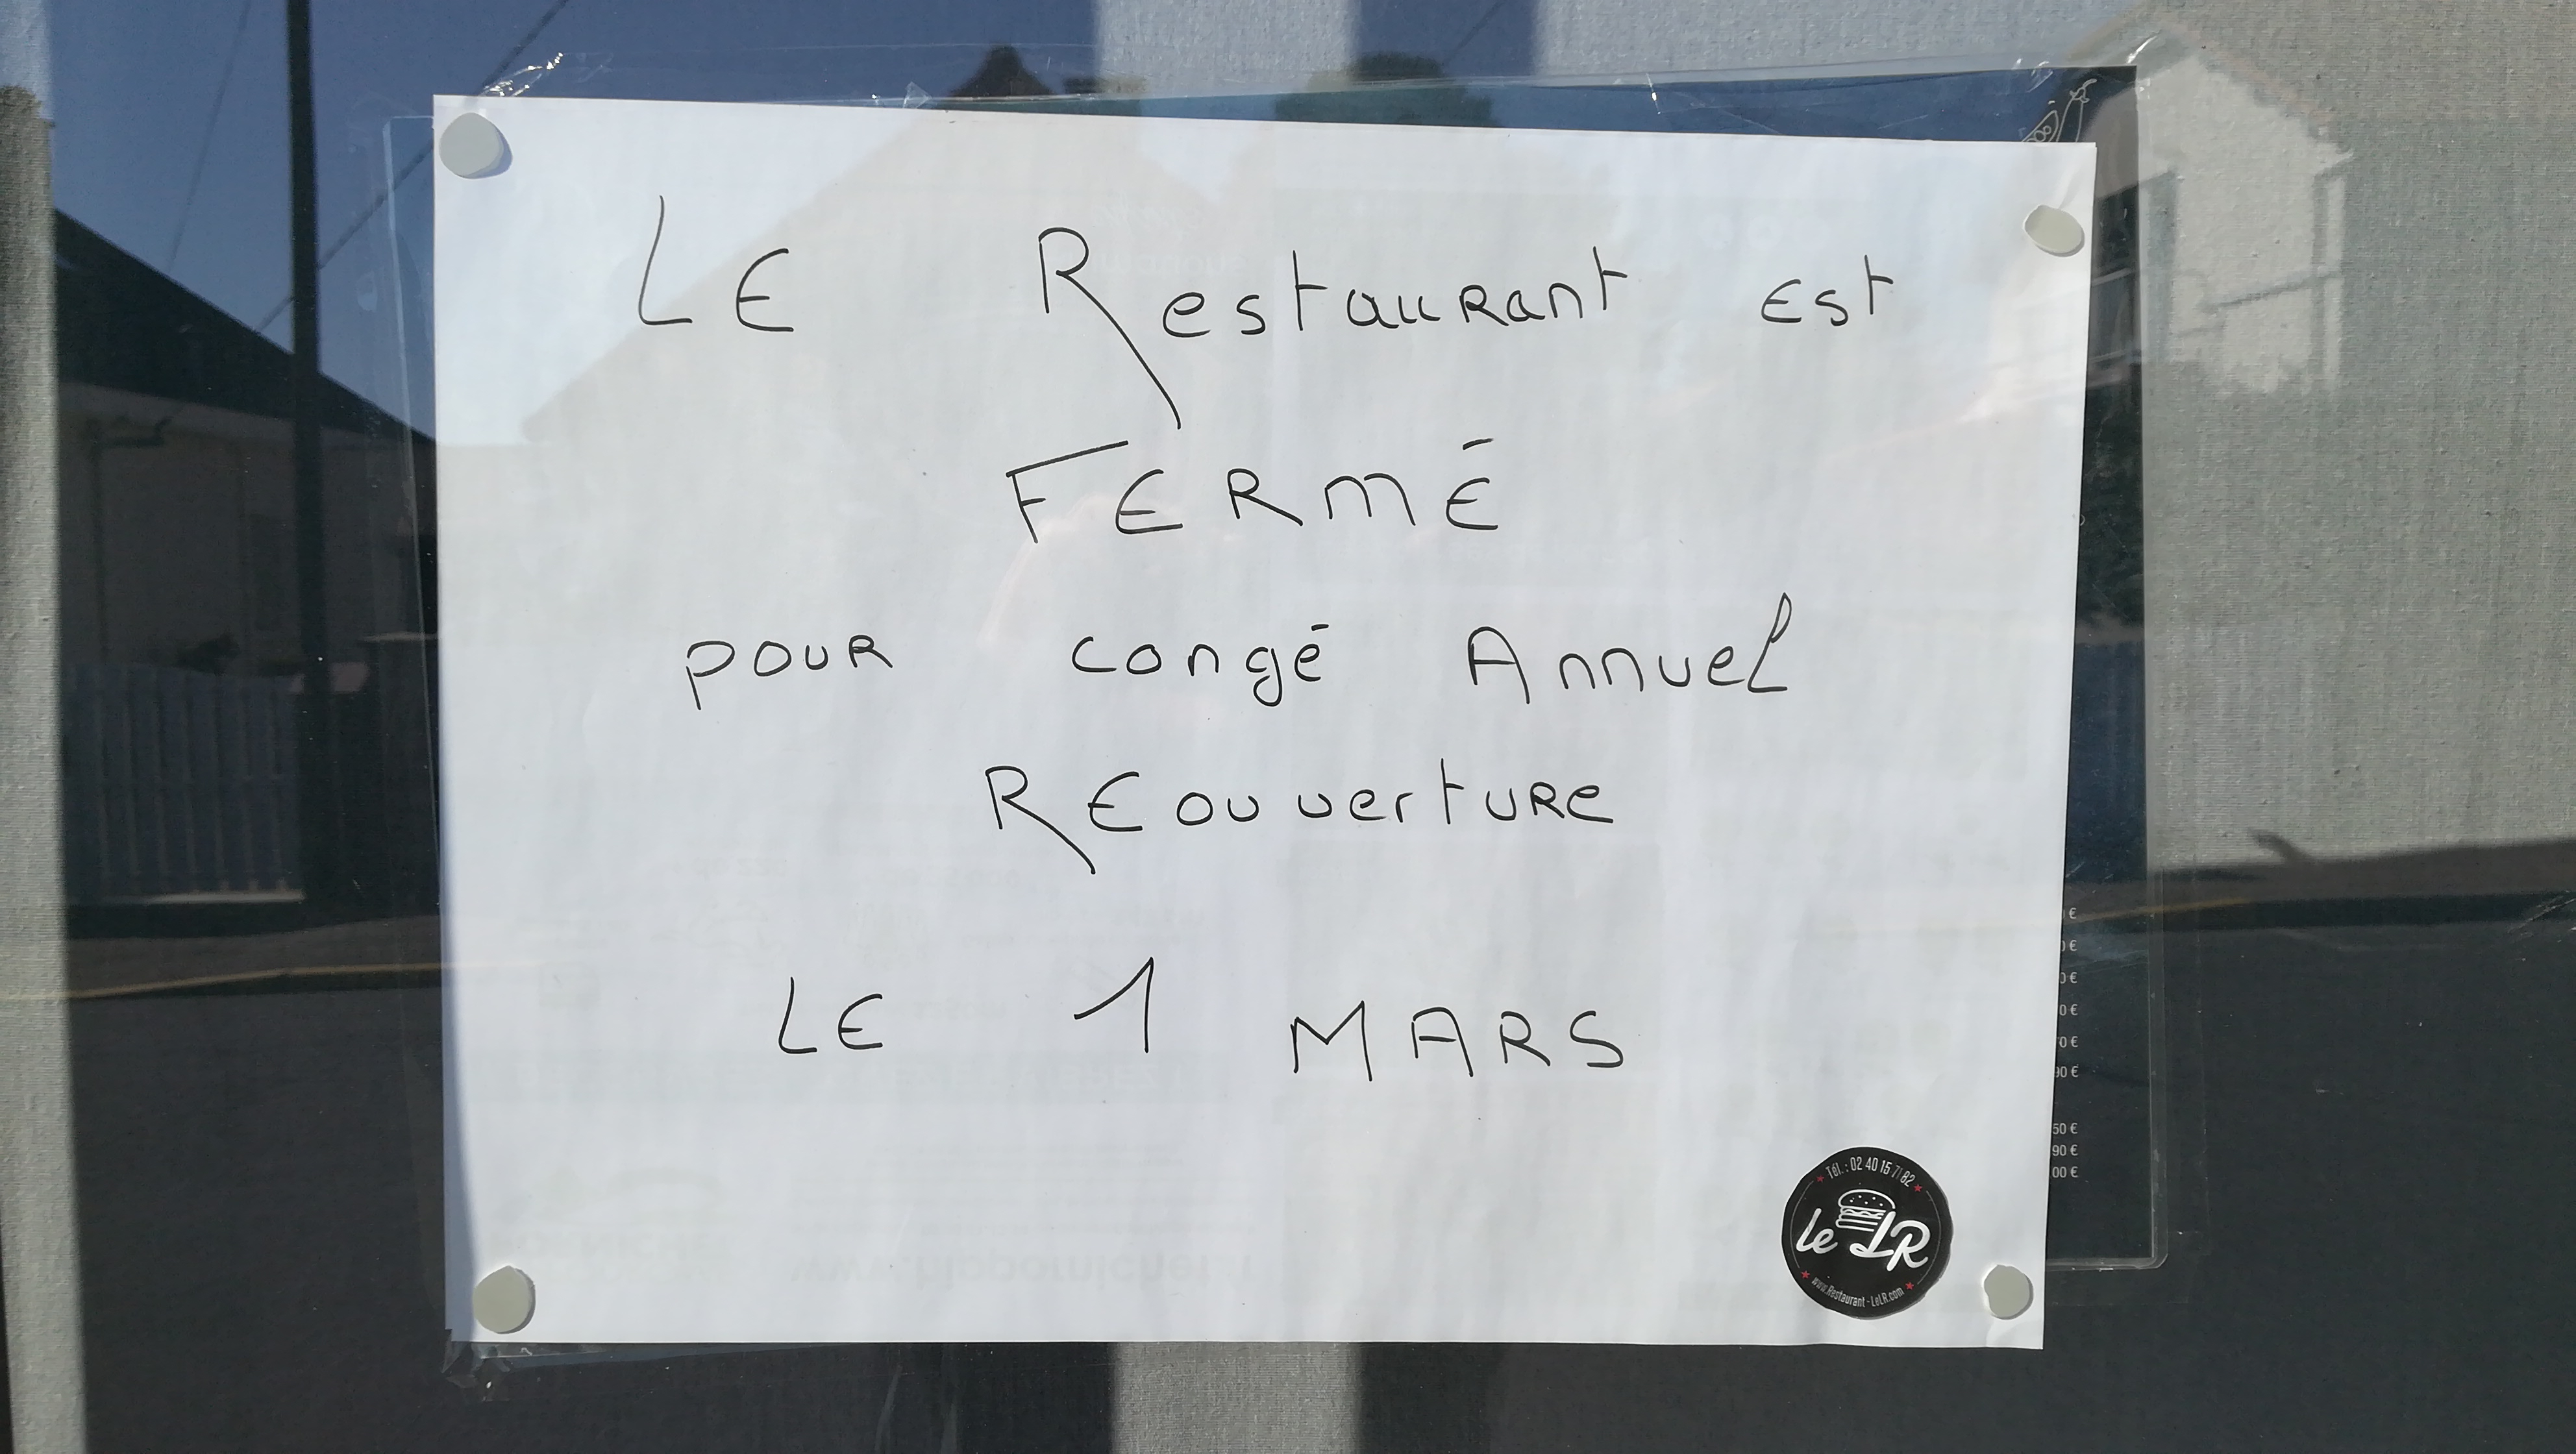 LE Restaurant est
FERMÉ
pour congé Annuel
REouverture
LE 1 MARS
Tél.: 02 40 15 71 82
le LR
www.Restaurant-LeLR.com
€
0 €
0 €
0 €
0 €
90 €
50 €
90 €
00 €